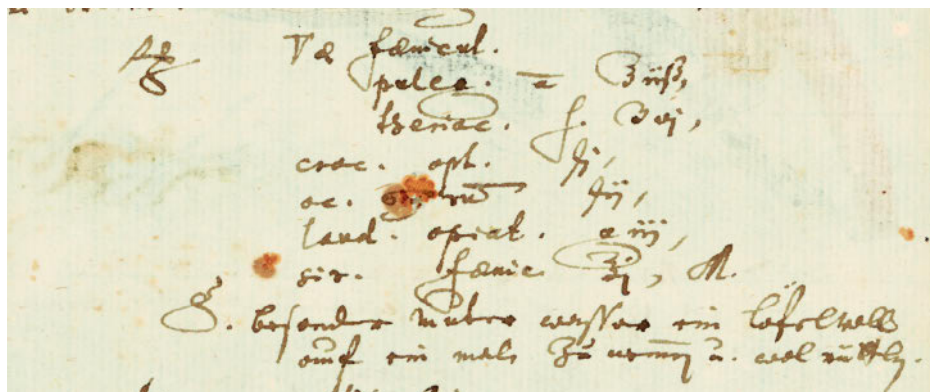 ℞ Va fænicul.
puleg. a ʒiiß,
theriac. ʒ. ʒvj,
croc. opt. ℈j,
oc. ℈ij,
laud. opiat. a iij,
sir. fænic ʒj, M.
S. besonder muter wasser ein löfelvoll
auf ein mals Zu nemen u. wol rüttlen.